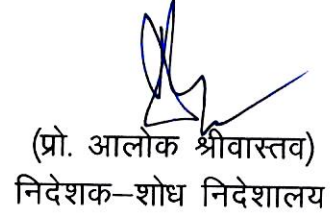 (प्रो. आलोक श्रीवास्तव)
निदेशक–शोध निदेशालय